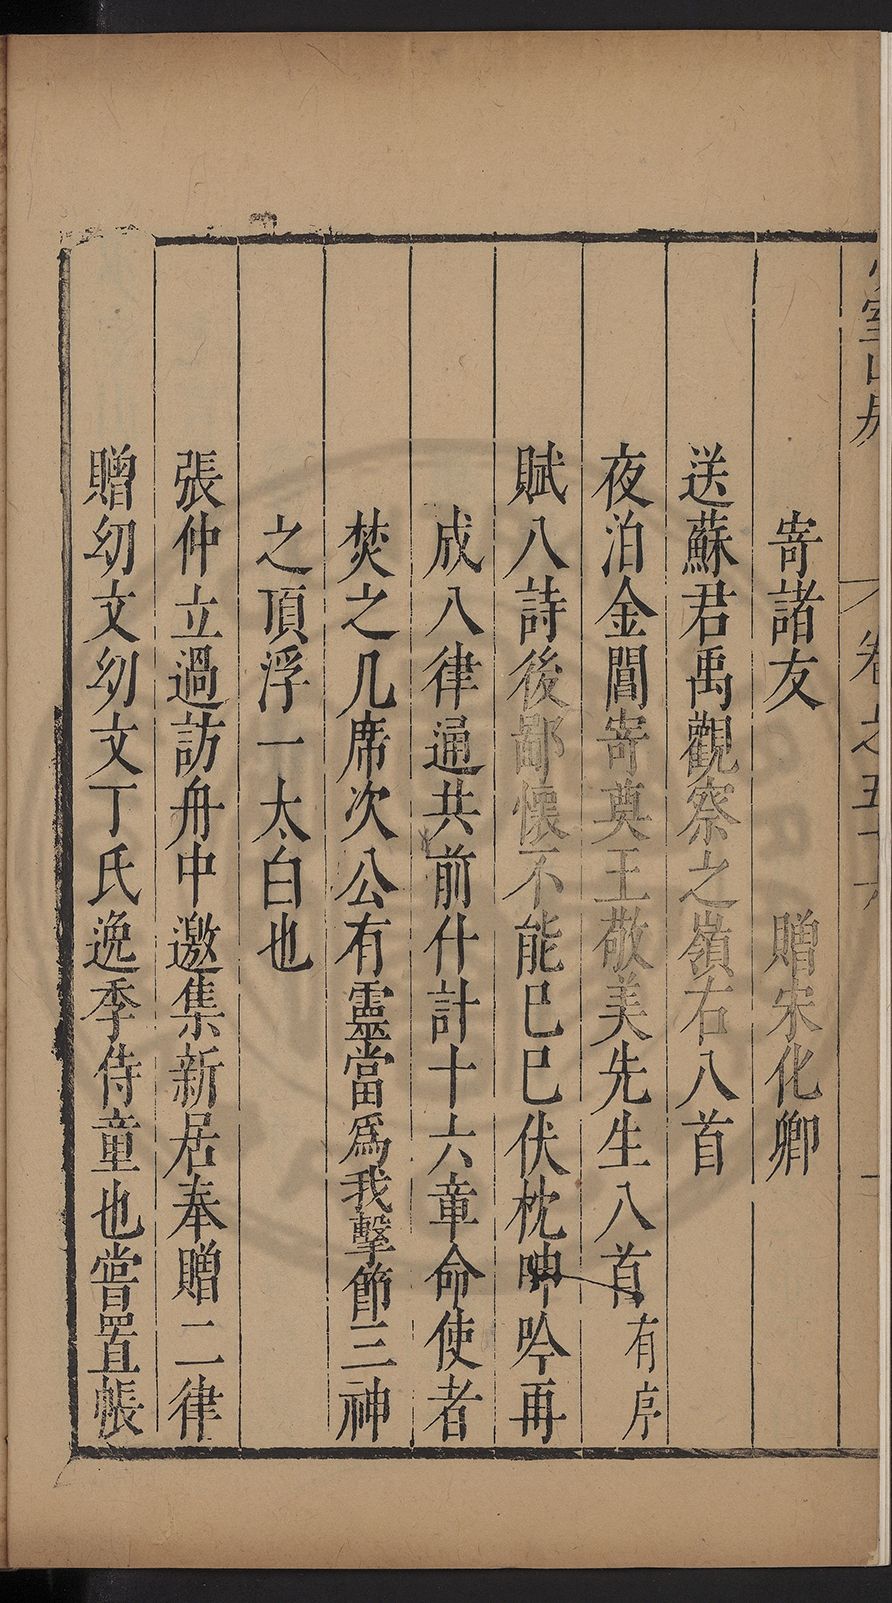 少室山房 卷之五十六
寄諸友 贈宋化卿
送蘇君禹觀察之嶺右八首
夜泊金閶寄奠王敬美先生八首有序
賦八詩後鄙懷不能已已伏枕呻吟再
成八律通共前什計十六章命使者
焚之几席次公有靈當爲我擊節三神
之頂浮一太白也
張仲立過訪舟中邀集新居奉贈二律
贈幼文幼文丁氏逸季侍童也嘗置帳